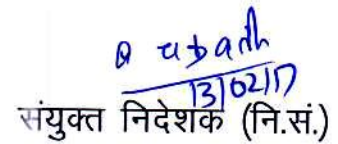 13/02/17
संयुक्त निदेशक (नि.सं.)